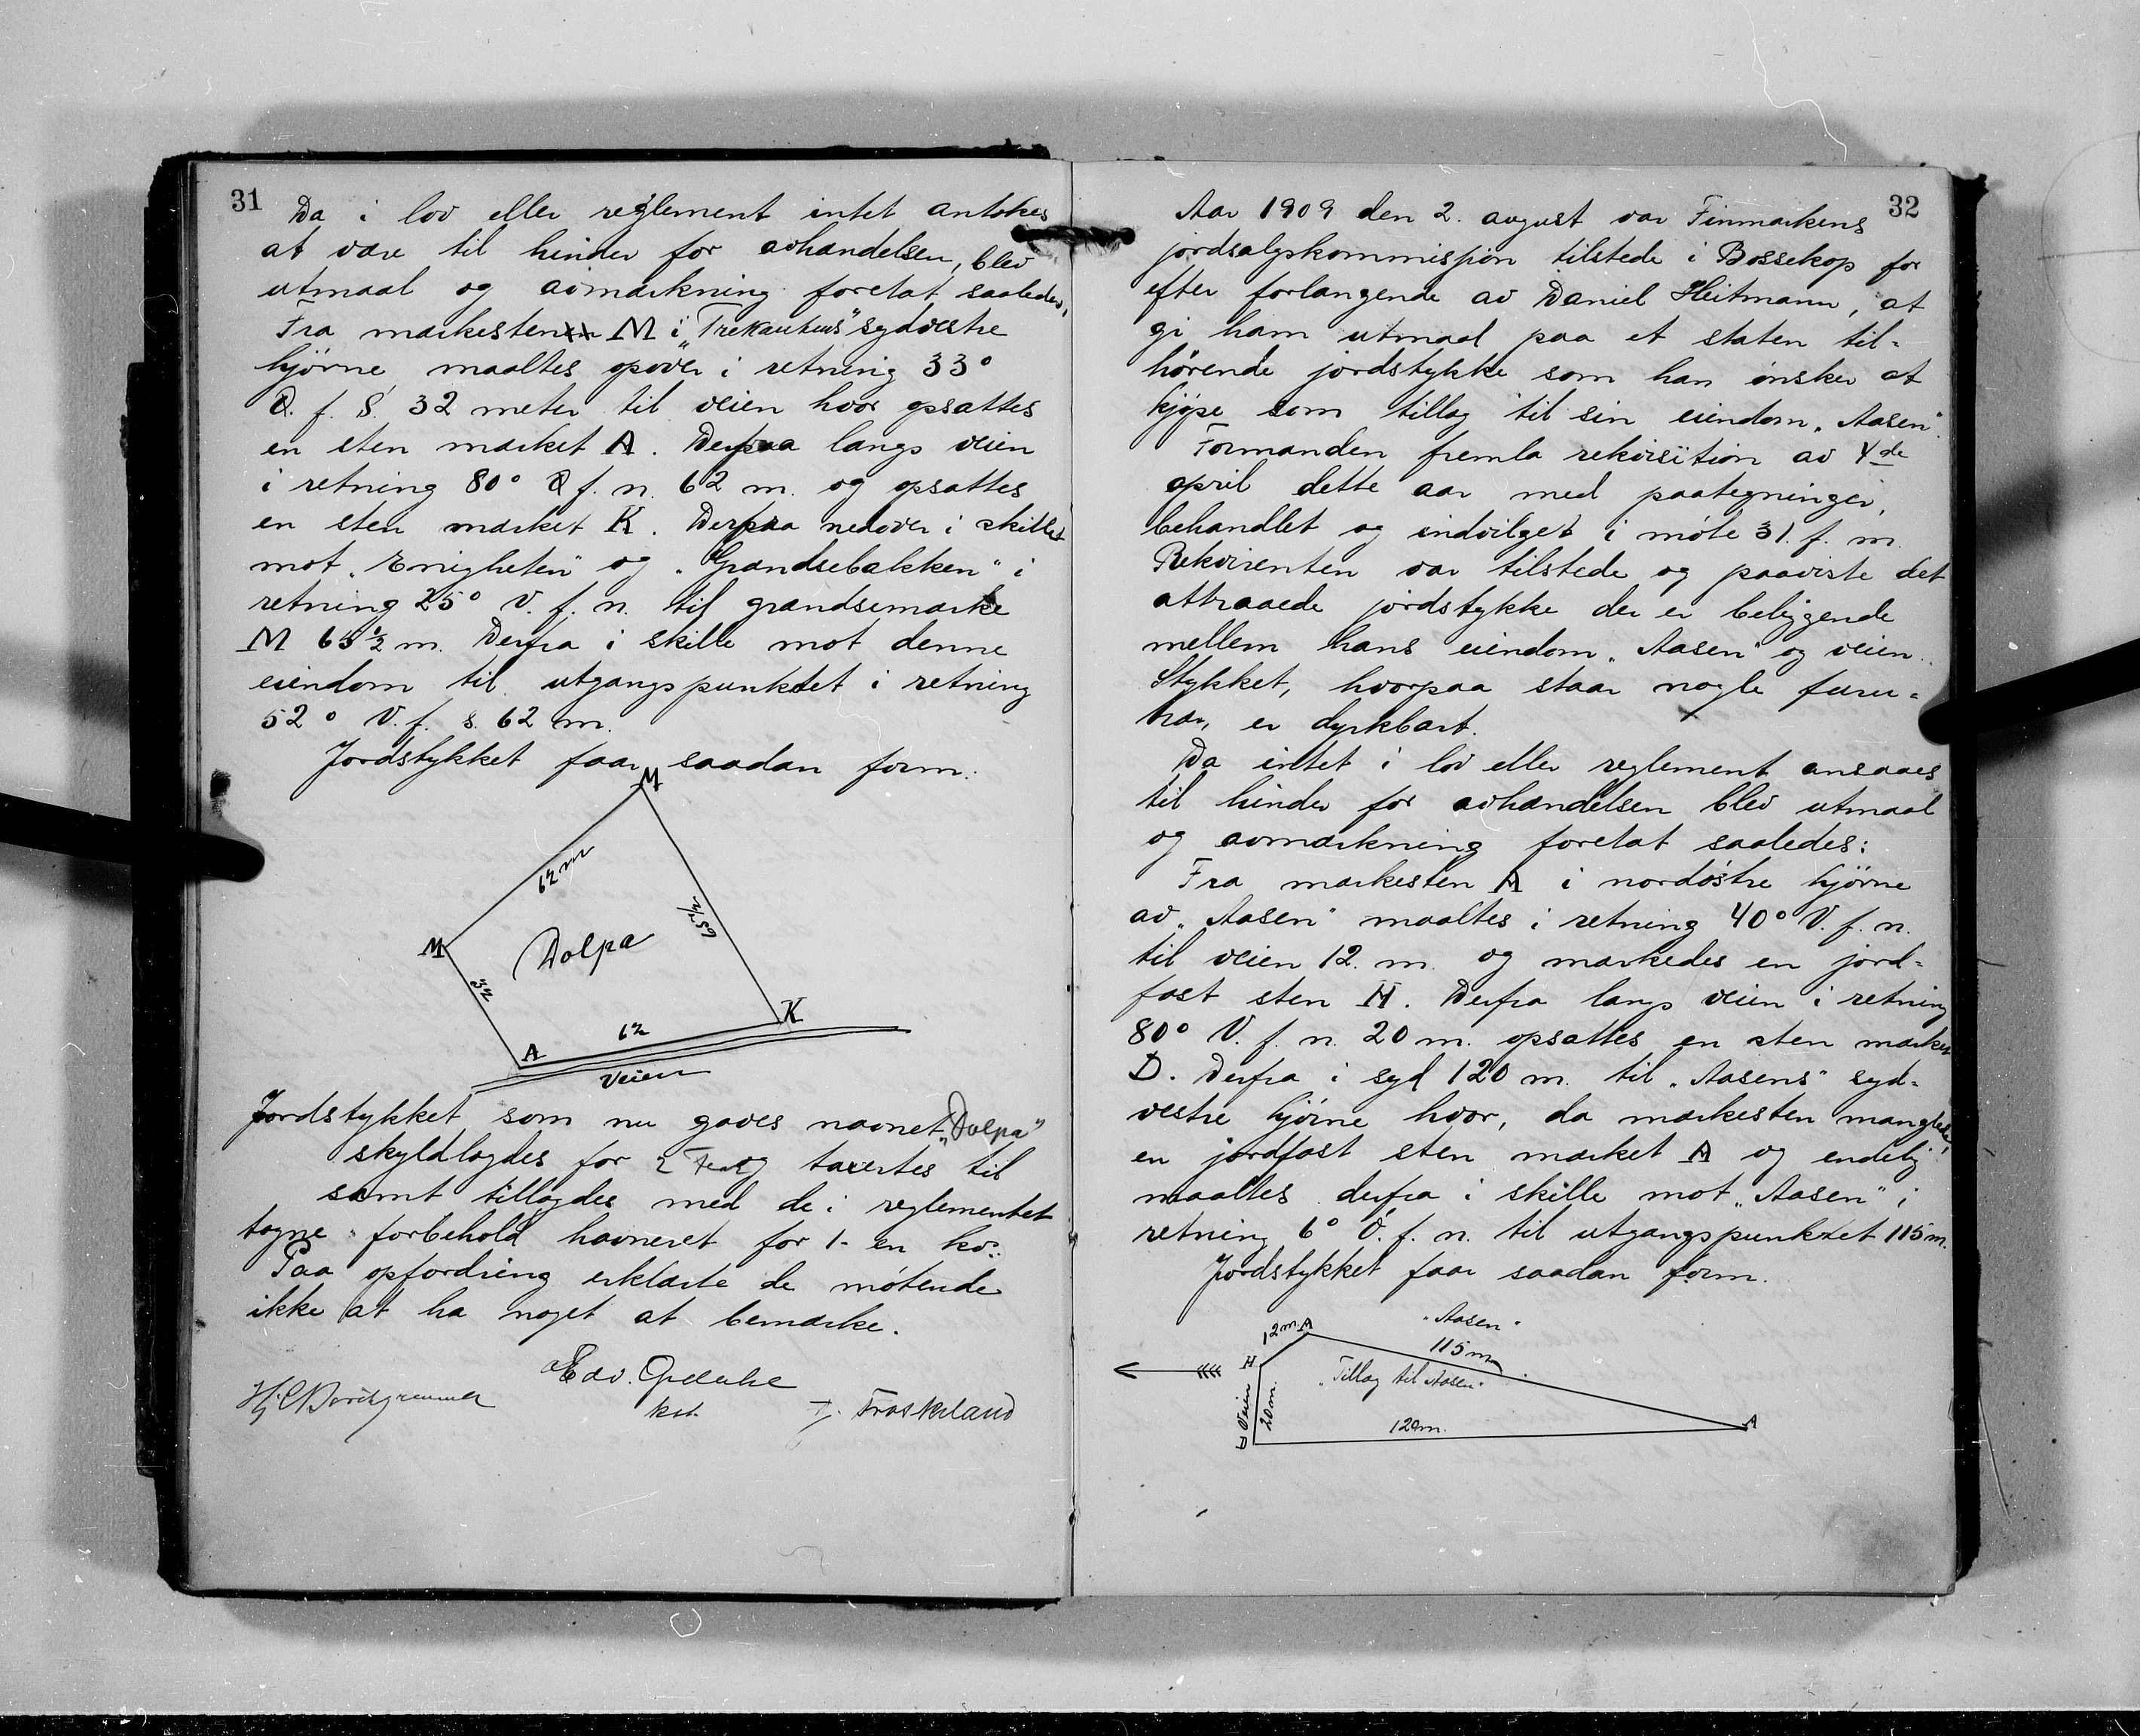 31
Da i lov eller reglement intet antokes
at være til hinder for avhændelsen, blev
utmaal og avmærkning foretat saaledes,
Fra merkesten M i „Trekantens" sydvestre
hjørne maaltes opover i retning 33°
Ø. f. S. 32 meter til veien hvor opsattes
en sten mærket A. Derpaa langs veien
i retning 80° Ø f. n. 62 m. og opsattes
en sten mærket K. Derpaa nedover i skillet
mot „Enigheten" og „Grændsebakken" i
retning 25° V. f. n. til grændsemærke
M 65½ m. Derfra i skille mot denne
eiendom til utgangspunktet i retning
52° V. f. s. 62 m.
Jordstykket faar saadan form:
M
62 m
65½
M
Dolpa
32
62
K
A
Veien
Jordstykket som nu gaves navnet „Dolpa"
skyldlagdes for 2 taxertes til
samt tillagdes med de i reglementet
tagne forbehold havneret for 1- en ko.
Paa opfordring erklærte de møtende
ikke at ha noget at bemærke.
Edv.
kst.
32
Aar 1909 den 2. avgust var Finmarkens
jordsalgskommission tilstede i Bossekop for
efter forlangende av Daniel Heitmann, at
gi ham utmaal paa et staten til-
hørende jordstykke som han ønsker at
kjøpe som tillæg til sin eiendom „Aasen".
Formanden fremla rekvisition av 4de
april dette aar med paategninger,
behandlet og indvilget i møte 31. f. m.
Rekvirenten var tilstede og paaviste det
attraaede jordstykke der er beliggende
mellem hans eiendom „Aasen" og veien.
Stykket, hvorpaa staar nogle furu-
trær, er dyrkbart.
Da intet i lov eller reglement ansaaes
til hinder for avhændelsen blev utmaal
og avmærkning foretat saaledes:
Fra merkesten A i nordøstre hjørne
av „Aasen" maaltes i retning 40° V. f. n.
til veien 12. m. og merkedes en jord-
fast sten H. Derfra langs veien i retning
80° V. f. n. 20 m. opsattes en sten merket
D. Derfra i syd 120 m. til „Aasens" syd-
vestre hjørne hvor, da merkesten manglede,
en jordfast sten mærket A og endelig
maaltes derfra i skille mot „Aasen" i
retning 6° Ø. f. n. til utgangspunktet 115 m.
Jordstykket faar saadan form.
„Aasen"
12 m. A
115 m
H
„Tillæg til Aasen"
Veien
20 m.
120 m.
A
D